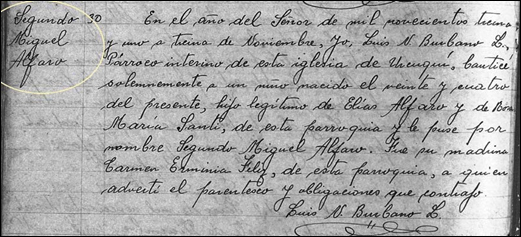 Segundo 30 En el año del Señor de mil novecientos treina
Miguel y uno a treina de Noviembre, Yo, Luis N. Burbano L.,
Alfaro Párroco interino de esta iglesia de Urcuquí, bauticé
solemnemente a un niño nacido el veinte y cuatro
del presente, hijo legítimo de Elías Alfaro y de
María Santi, de esta parroquia y le puse por
nombre Segundo Miguel Alfaro. Fue su madrina
Carmen Erminia Feliz, de esta parroquia, a quien
advertí el parentesco y obligaciones que contrajo.
Luis N. Burbano L.